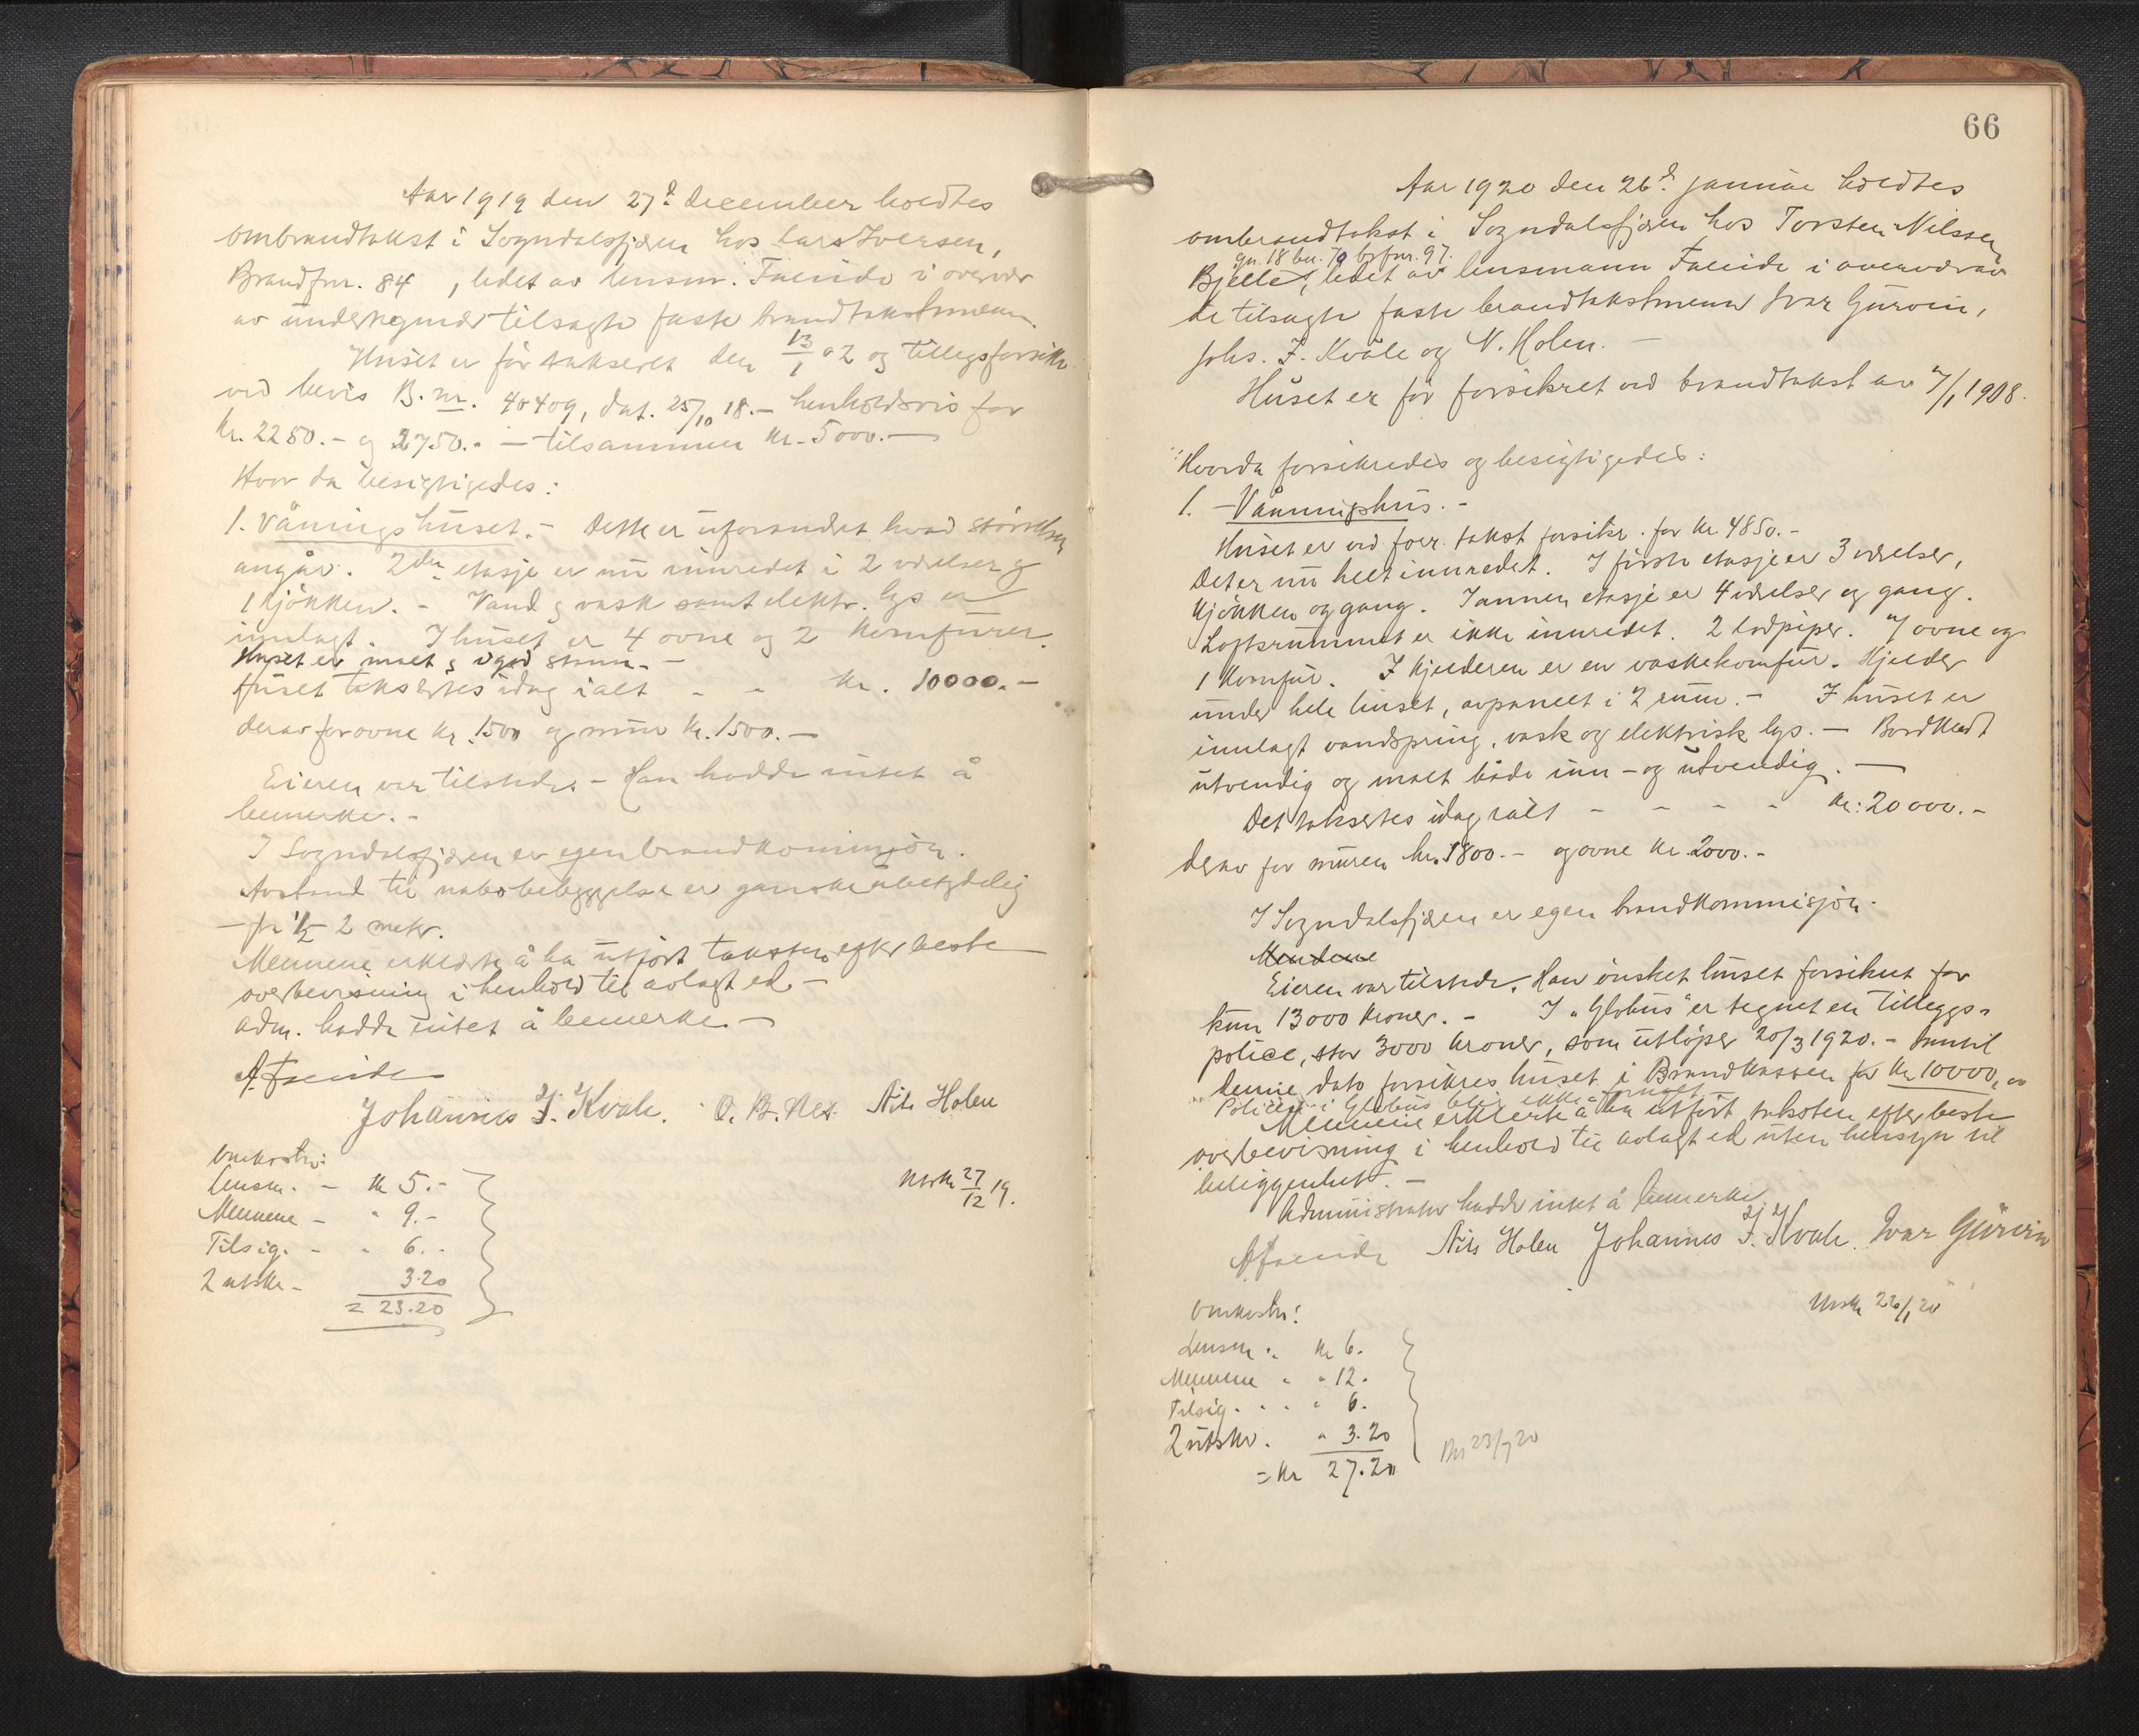 Aar 1919 den 27d December holdtes
ombrandtakst i Sogndalsfjæren hos Lars Iversen,
Brandfnr. 84, ledet av lensm. Faleide i overvær
av undertegnede tilsagte faste brandtakstmenn.
Huset er før taksert den 13/1 02 og tillegsforsikr.
ved bevis B. nr. 40409, dat. 25/10 18.- henholdsvis for
Kr. 2250.- og 2750.- - tilsammen Kr. 5000.-
Hvor da besigtigedes:
1. Våningshuset. - Dette er uforandret hvad størrelsen
angår. 2den etasje er nu innredet i 2 værelser og
1 kjøkken. - Vand & vask samt elektr. lys er
innlagt. I huset er 4 ovne og 2 komfurer.
Huset er malt & i god stann. -
Huset takseres idag ialt - - Kr. 10000.-
derav for ovne Kr. 1500 og mur Kr. 1500.-
Eieren var tilstede. - Han hadde intet å
bemerke. -
I Sogndalsfjæren er egen brandkommisjon.
Avstand til nabobebyggelse er ganske ubetydelig
- fra 1/2 - 2 meter.
Mennene erklærte å ha utført taksten efter beste
overbevisning i henhold til avlagt ed. -
Adm. hadde intet å bemerke. -
A Faleide
Johannes J. Kvale. O. B. Nes Nils Holen
Omkostn:
Lensm. - Kr 5.-
Utskr 27/12 19.
Mennene - " 9.-
Tilsig. - " 6.-
2 utskr - 3.20
= 23.20
66
Aar 1920 den 26d januar holdtes
ombrandtakst i Sogndalsfjæren hos Torsten Nilssen
gn. 18 bn. 70 brfnr. 97.
Bjelle, ledet av lensmann Faleide i overvær av
de tilsagte faste brandtakstmenn Ivar Gurvin,
Johs. J. Kvåle og N. Holen. -
Huset er før forsikret ved brandtakst av 7/1 1908.
Hvorda forsikredes og besigtigedes:
1. - Våningshus. -
Huset er ved forr. takst forsikr. for Kr 4850.-
Det er nu helt innredet. I første etasje er 3 værelser,
kjøkken og gang. I annen etasje er 4 værelser og gang.
Loftsrummet er ikke innredet. 2 lodpiper. 7 ovne og
1 komfur. I kjelderen er en vaskekomfur. Kjelder
under hele huset, avpanelt i 2 rum. - I huset er
innlagt vandspring, vask og elektrisk lys. - Bordklædt
utvendig og malt både inn- og utvendig. -
Det takseres idag ialt - - - - Kr: 20000.-
derav for muren kr. 1800.- og ovne Kr. 2000.-
I Sogndalsfjæren er egen brandkommisjon.
Mendene
Eieren var tilstede. Han ønsket huset forsikret for
kun 13000 kroner. - I "Globus" er tegnet en tilleggs-
police, stor 3000 kroner, som utløper 20/3 1920. - Inntil
denne dato forsikres huset i Brandkassen for Kr. 10000, da
Policen i Globus blir ikke fornyet.
Mennene erklærte å ha utført taksten efter beste
overbevisning i henhold til avlagt ed uten hensyn til
beliggenhet. -
Administrator hadde intet å bemerke.
A Faleide Nils Holen Johannes J. Kvale. Ivar Gurvin
Omkostn:
Utskr 26/1 20
Lensm. " Kr 6.
Mennene " " 12.
Tilsig. " " 6.
2 utskr. " 3.20
= Kr 27.20